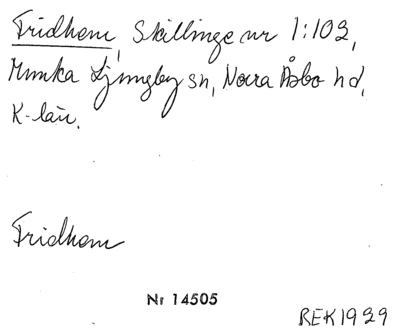 Fridhem, Skillinge nr 1:102,
Munka Ljungby sn, Norra Åsbo hd,
K-län.
Fridhem
Nr 14505
REK1929